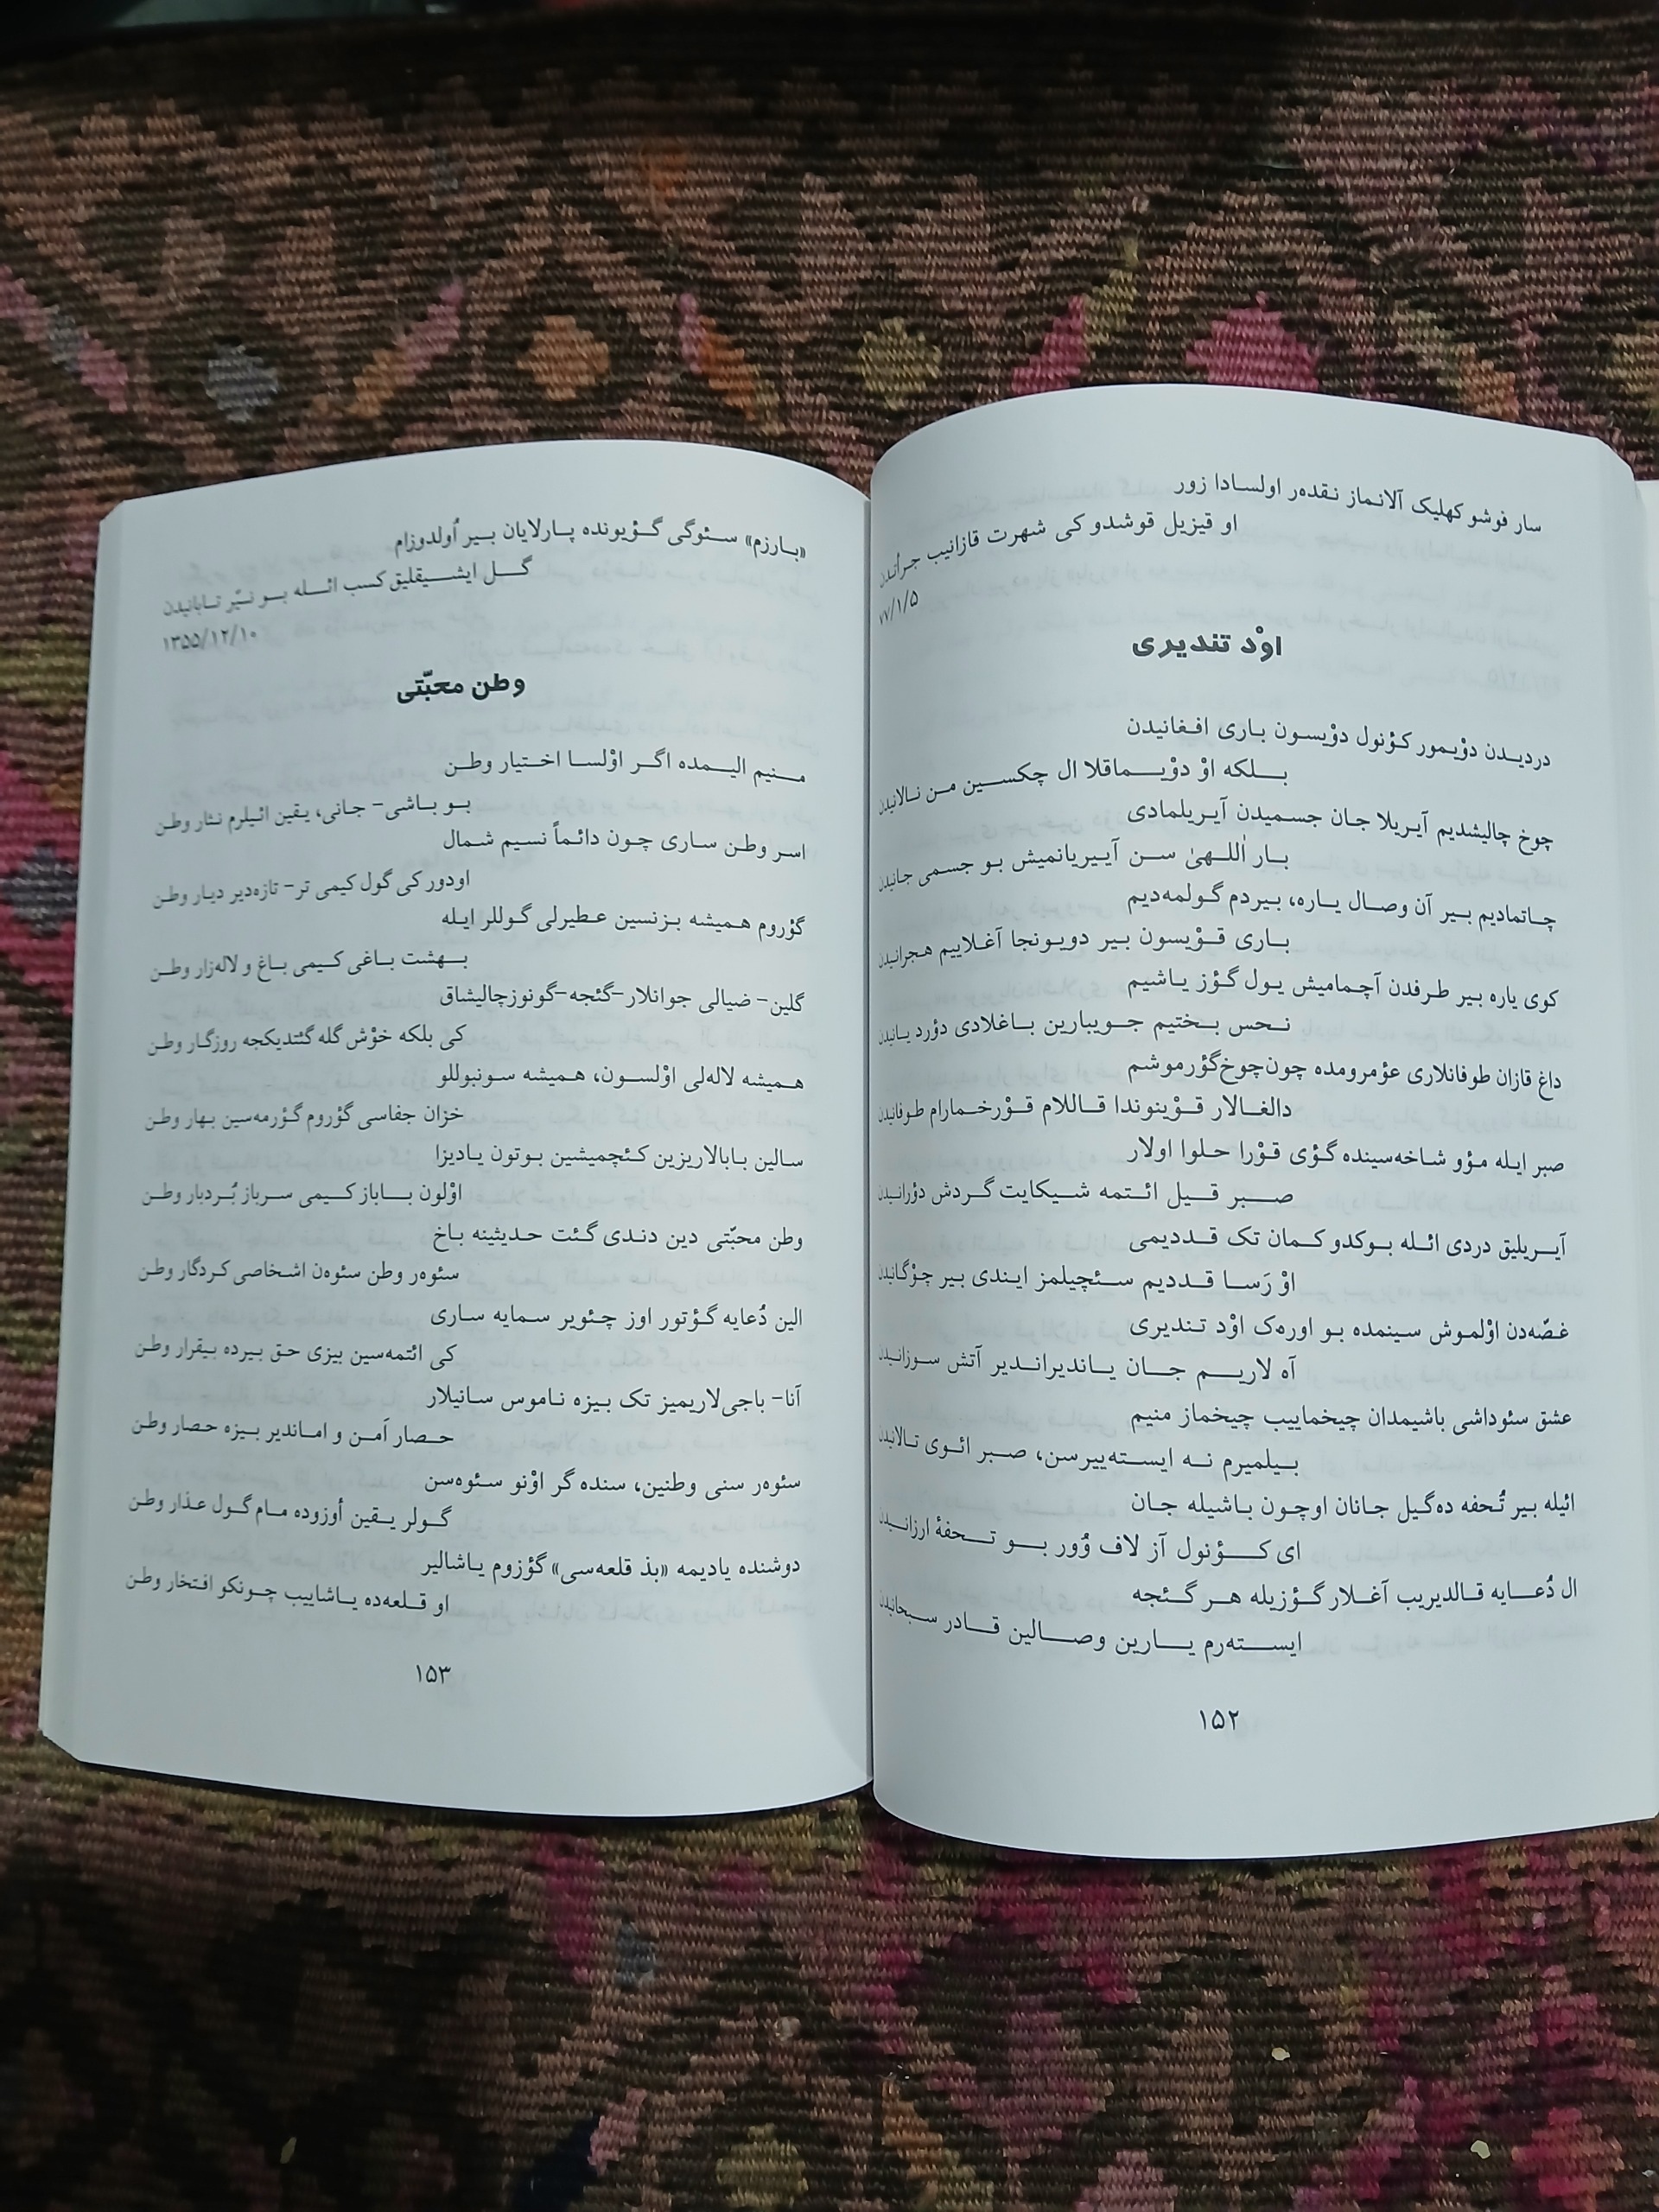 سار قوشو کهلیک آلانماز نقدهر اولسادا زور
او قیزیل قوشدو کی شهرت قازانیب جرأتدن
۷۷/۱/۵
اوْد تندیری
دردیدن دوْیمور کؤنول دوْیسون باری افغانیدن
بلکه اوْ دوْیماقلا ال چکسین من نالانیدن
چوخ چالیشدیم آیریلا جان جسمیدن آیریلمادی
بار اٰللهیٰ سن آییریانمیش بو جسمی جانیدن
چاتمادیم بیر آن وصال یاره، بیردم گولمه‌دیم
باری قوْیسون بیر دویونجا آغلاییم هجرانیدن
کوی یاره بیر طرفدن آچمامیش یول گؤز یاشیم
نحس بختیم جویبارین باغلادی دؤرد یانیدن
داغ قازان طوفانلاری عؤمرومده چون‌چوخ‌گؤرموشم
دالغالار قوْینوندا قاللام قوْرخمارام طوفانیدن
صبر ایله مؤو شاخه‌سینده گؤی قوْرا حلوا اولار
صبر قیل ائتمه شیکایت گردش دؤرانیدن
آیریلیق دردی ائله بوکدو کمان تک قددیمی
اوْ رَسا قددیم سئچیلمز ایندی بیر چوْگانیدن
غصّه‌دن اوْلموش سینمده بو اوره‌ک اوْد تندیری
آه لاریم جان یاندیراندیر آتش سوزانیدن
عشق سئوداشی باشیمدان چیخماییب چیخماز منیم
بیلمیرم نه ایسته‌ییرسن، صبر ائوی تالانیدن
ائیله بیر تُحفه ده‌گیل جانان اوچون باشیله جان
ای کؤنول آز لاف وُور بو تحفهٔ ارزانیدن
ال دُعایه قالدیریب آغلار گؤزیله هر گئجه
ایسته‌رم یارین وصالین قادر سبحانیدن
۱۵۲
«بارزم» سئوگی گؤیونده پارلایان بیر اُولدوزام
گل ایشیقلیق کسب ائله بو نیّر تابانیدن
۱۳۵۵/۱۲/۱۰
وطن محبّتی
منیم الیمده اگر اوْلسا اختیار وطن
بو باشی- جانی، یقین ائیلرم نثار وطن
اسر وطن ساری چون دائماً نسیم شمال
اودور کی گول کیمی تر- تازه‌دیر دیار وطن
گؤروم همیشه بزنسین عطیرلی گوللر ایله
بهشت باغی کیمی باغ و لاله‌زار وطن
گلین- ضیالی جوانلار-گئجه-گونوزچالیشاق
کی بلکه خوْش گله گئتدیکجه روزگار وطن
همیشه لاله‌لی اوْلسون، همیشه سونبوللو
خزان جفاسی گؤروم گؤرمه‌سین بهار وطن
سالین بابالاریزین کئچمیشین بوتون یادیزا
اوْلون باباز کیمی سرباز بُردبار وطن
وطن محبّتی دین دندی گئت حدیثینه باخ
سئوه‌ر وطن سئوه‌ن اشخاصی کردگار وطن
الین دُعایه گؤتور اوز چئویر سمایه ساری
کی ائتمه‌سین بیزی حق بیرده بیقرار وطن
آنا- باجی‌لاریمیز تک بیزه ناموس سانیلار
حصار اَمن و اماندیر بیزه حصار وطن
سئوه‌ر سنی وطنین، سنده گر اوْنو سئوه‌سن
گولر یقین اُوزوده مام گول عذار وطن
دوشنده یادیمه «بذ قلعه‌سی» گؤزوم یاشالیر
او قلعه‌ده یاشاییب چونکو افتخار وطن
۱۵۳